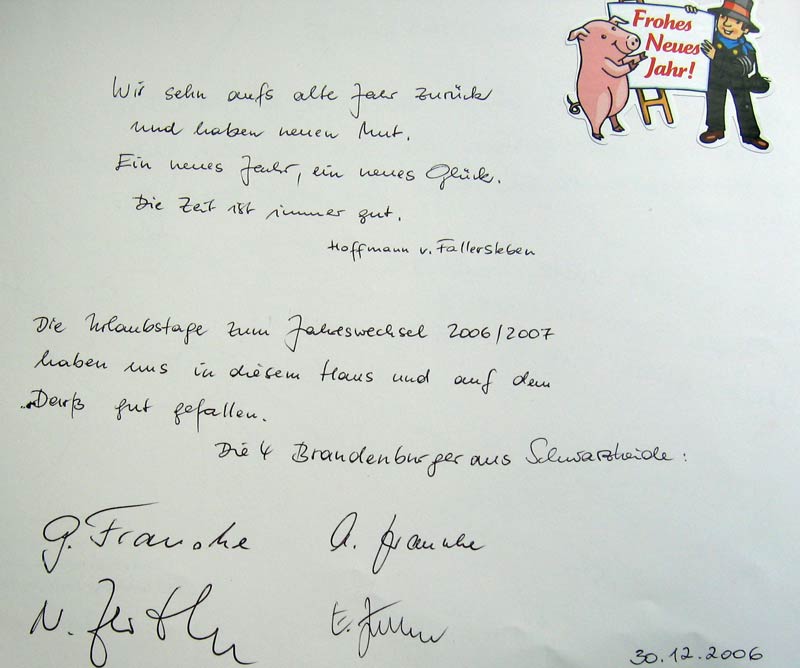 Frohes
Neues
Jahr!
Wir sehn aufs alte Jahr zurück
und haben neuen Mut.
Ein neues Jahr, ein neues Glück.
Die Zeit ist immer gut.
Hoffmann v. Fallersleben
Die Urlaubstage zum Jahreswechsel 2006/2007
haben uns in diesem Haus und auf dem
Darß gut gefallen.
Die 4 Brandenburger aus Schwarzheide:
G. Francke A. Francke
N. E.
30.12.2006